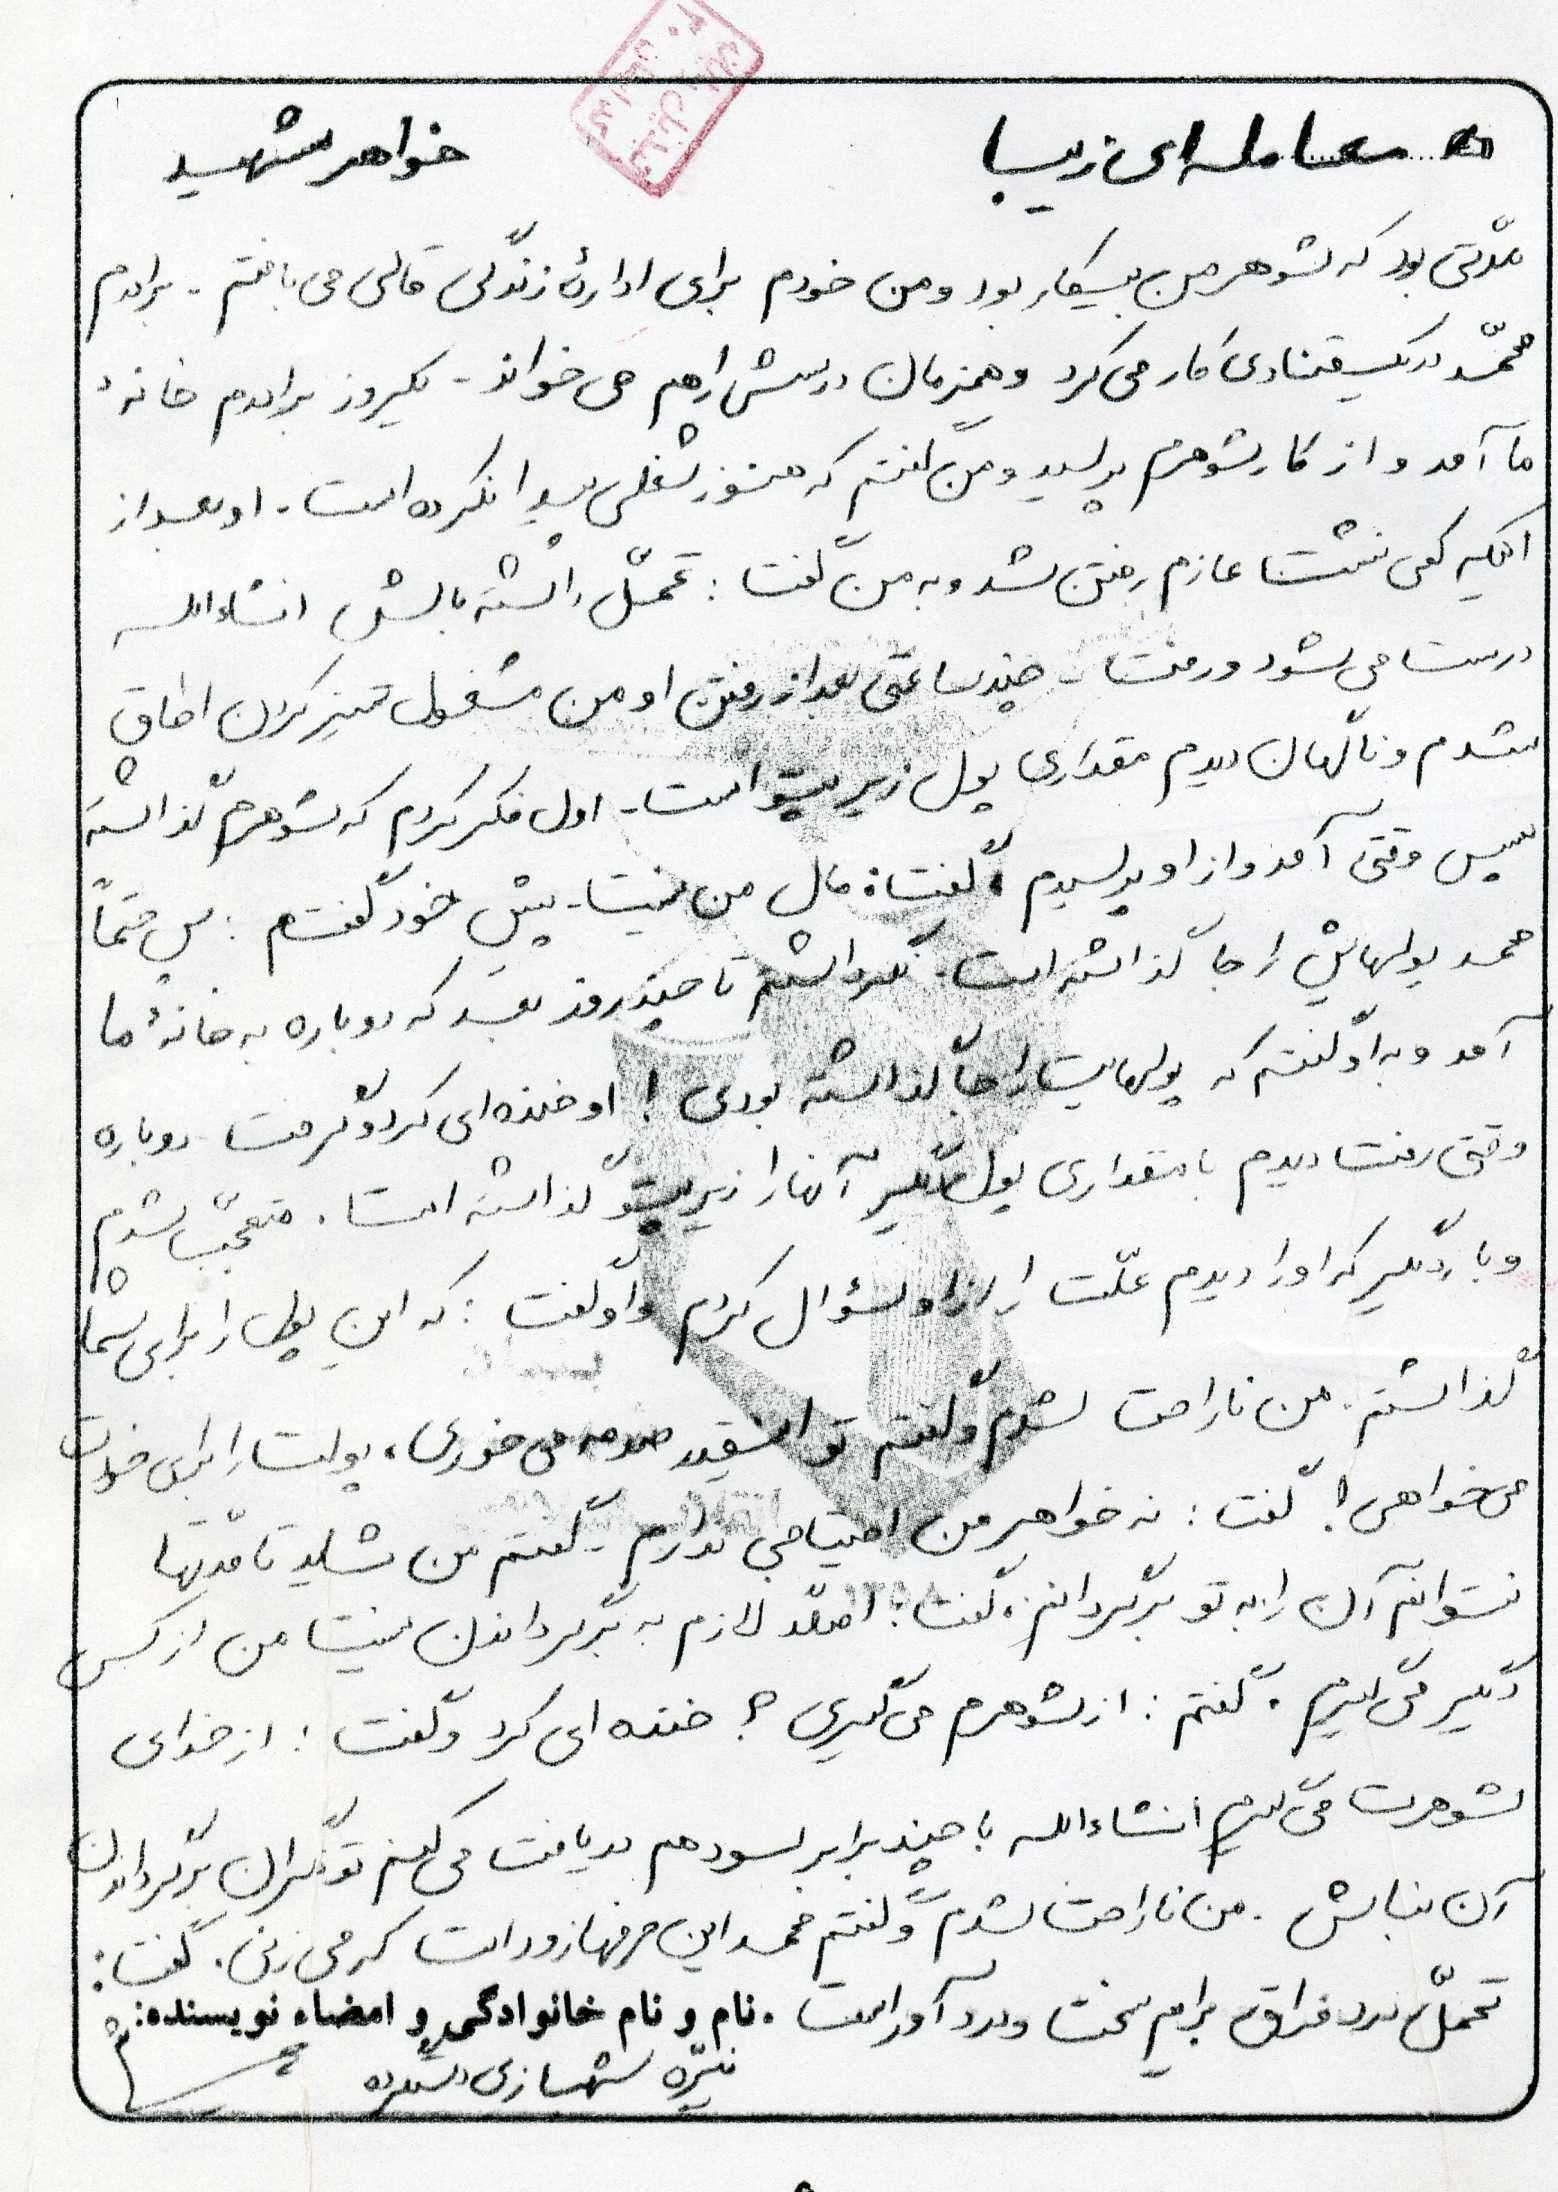 معامله‌ای زیبا
خواهر شهید
مدّتی بود که شوهر من بیکار بود و من خودم برای ادارهٔ زندگی قالی می بافتم - برادرم
محمّد در یک قنادی کار می کرد و همزمان درسش را هم می خواند - یکروز برادرم خانهٔ
ما آمد و از کار شوهرم پرسید و من گفتم که هنوز شغلی پیدا نکرده است - او بعد از
اینکه کمی نشست عازم رفتن شد و به من گفت : تحمّل داشته باش انشاءالله
درست می شود و رفت - چند ساعتی بعد از رفتن او من مشغول تمیز کردن اطاق
شدم و ناگهان دیدم مقداری پول زیر پتو است - اول فکر کردم که شوهرم گذاشته
سپس وقتی آمد و از او پرسیدم ، گفت : مال من نیست - پیش خود گفتم : پس حتماً
محمد پولهایش را جا گذاشته است . نگه داشتم تا چند روز بعد که دوباره به خانهٔ ما
آمد و به او گفتم که پولهایت را جا گذاشته بودی ! او خنده ای کرد و گرفت دوباره
وقتی رفت دیدم با مقداری پول دیگر آنها را زیر پتو گذاشته است . متعجّب شدم
و بار دیگر که او را دیدم علّت را از او سؤال کردم و او گفت : که این پول را برای شما
گذاشتم . من ناراحت شدم و گفتم تو اینقدر صدمه می خوری ، پولت را برای خودت
می خواهی ! گفت : نه خواهر من احتیاجی ندارم - گفتم من شاید تا مدّتها
نتوانم آن را به تو برگردانم . گفت : اصلاً لازم به برگرداندن نیست من از کس
دیگر می گیرم . گفتم : از شوهرم می گیری ؟ خنده ای کرد و گفت : از خدای
شوهرت می گیرم انشاءالله با چند برابر سود هم دریافت می کنم تو نگران برگرداندن
آن نباش . من ناراحت شدم و گفتم محمد این حرفها زود است که می زنی . گفت :
تحمّل درد فراق برایم سخت و درد آور است .
نام و نام خانوادگی و امضاء نویسنده:
نیّره شهبازی